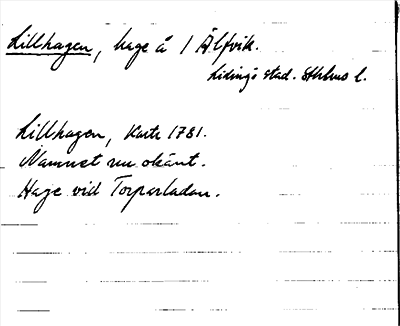 Lillhagen, hage å 1 Älfvik.
Lidingö stad. Sthlms l.
Lillhagen, Karta 1781.
Namnet nu okänt.
Hage vid Torparladan.